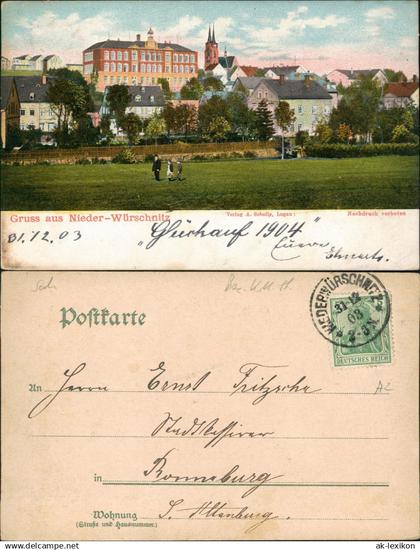 Gruss aus Nieder-Würschnitz
Verlag A. Schulip, Lugau
Nachdruck verboten
31.12.03
"Glückauf 1904"
Postkarte
NIEDERWÜRSCHNITZ
31 12
03
DEUTSCHES REICH
An Herrn Ernst Fritzsche
Stadtkassirer
in Ronneburg
Wohnung S. Altenburg.
(Straße und Hausnummer)
© ak-lexikon
www.ak-lexikon.de